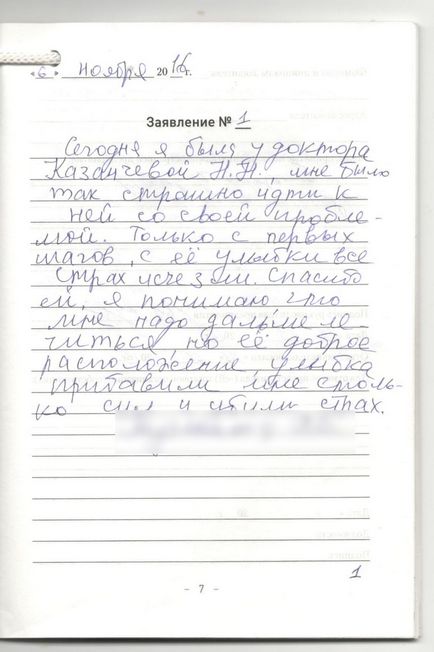 « 6 » ноября 2016 г.
Заявление № 1
Сегодня я была у доктора
Казанчевой Н.Н., мне было
так страшно идти к
ней со своей пробле-
мой. Только с первых
шагов, с её улыбки все
страх исчезли. Спасибо
ей, я понимаю что
мне надо дальше ле-
читься но её доброе
расположение, улыбка
прибавили мне столь-
ко сил и убили страх.
1
- 7 -